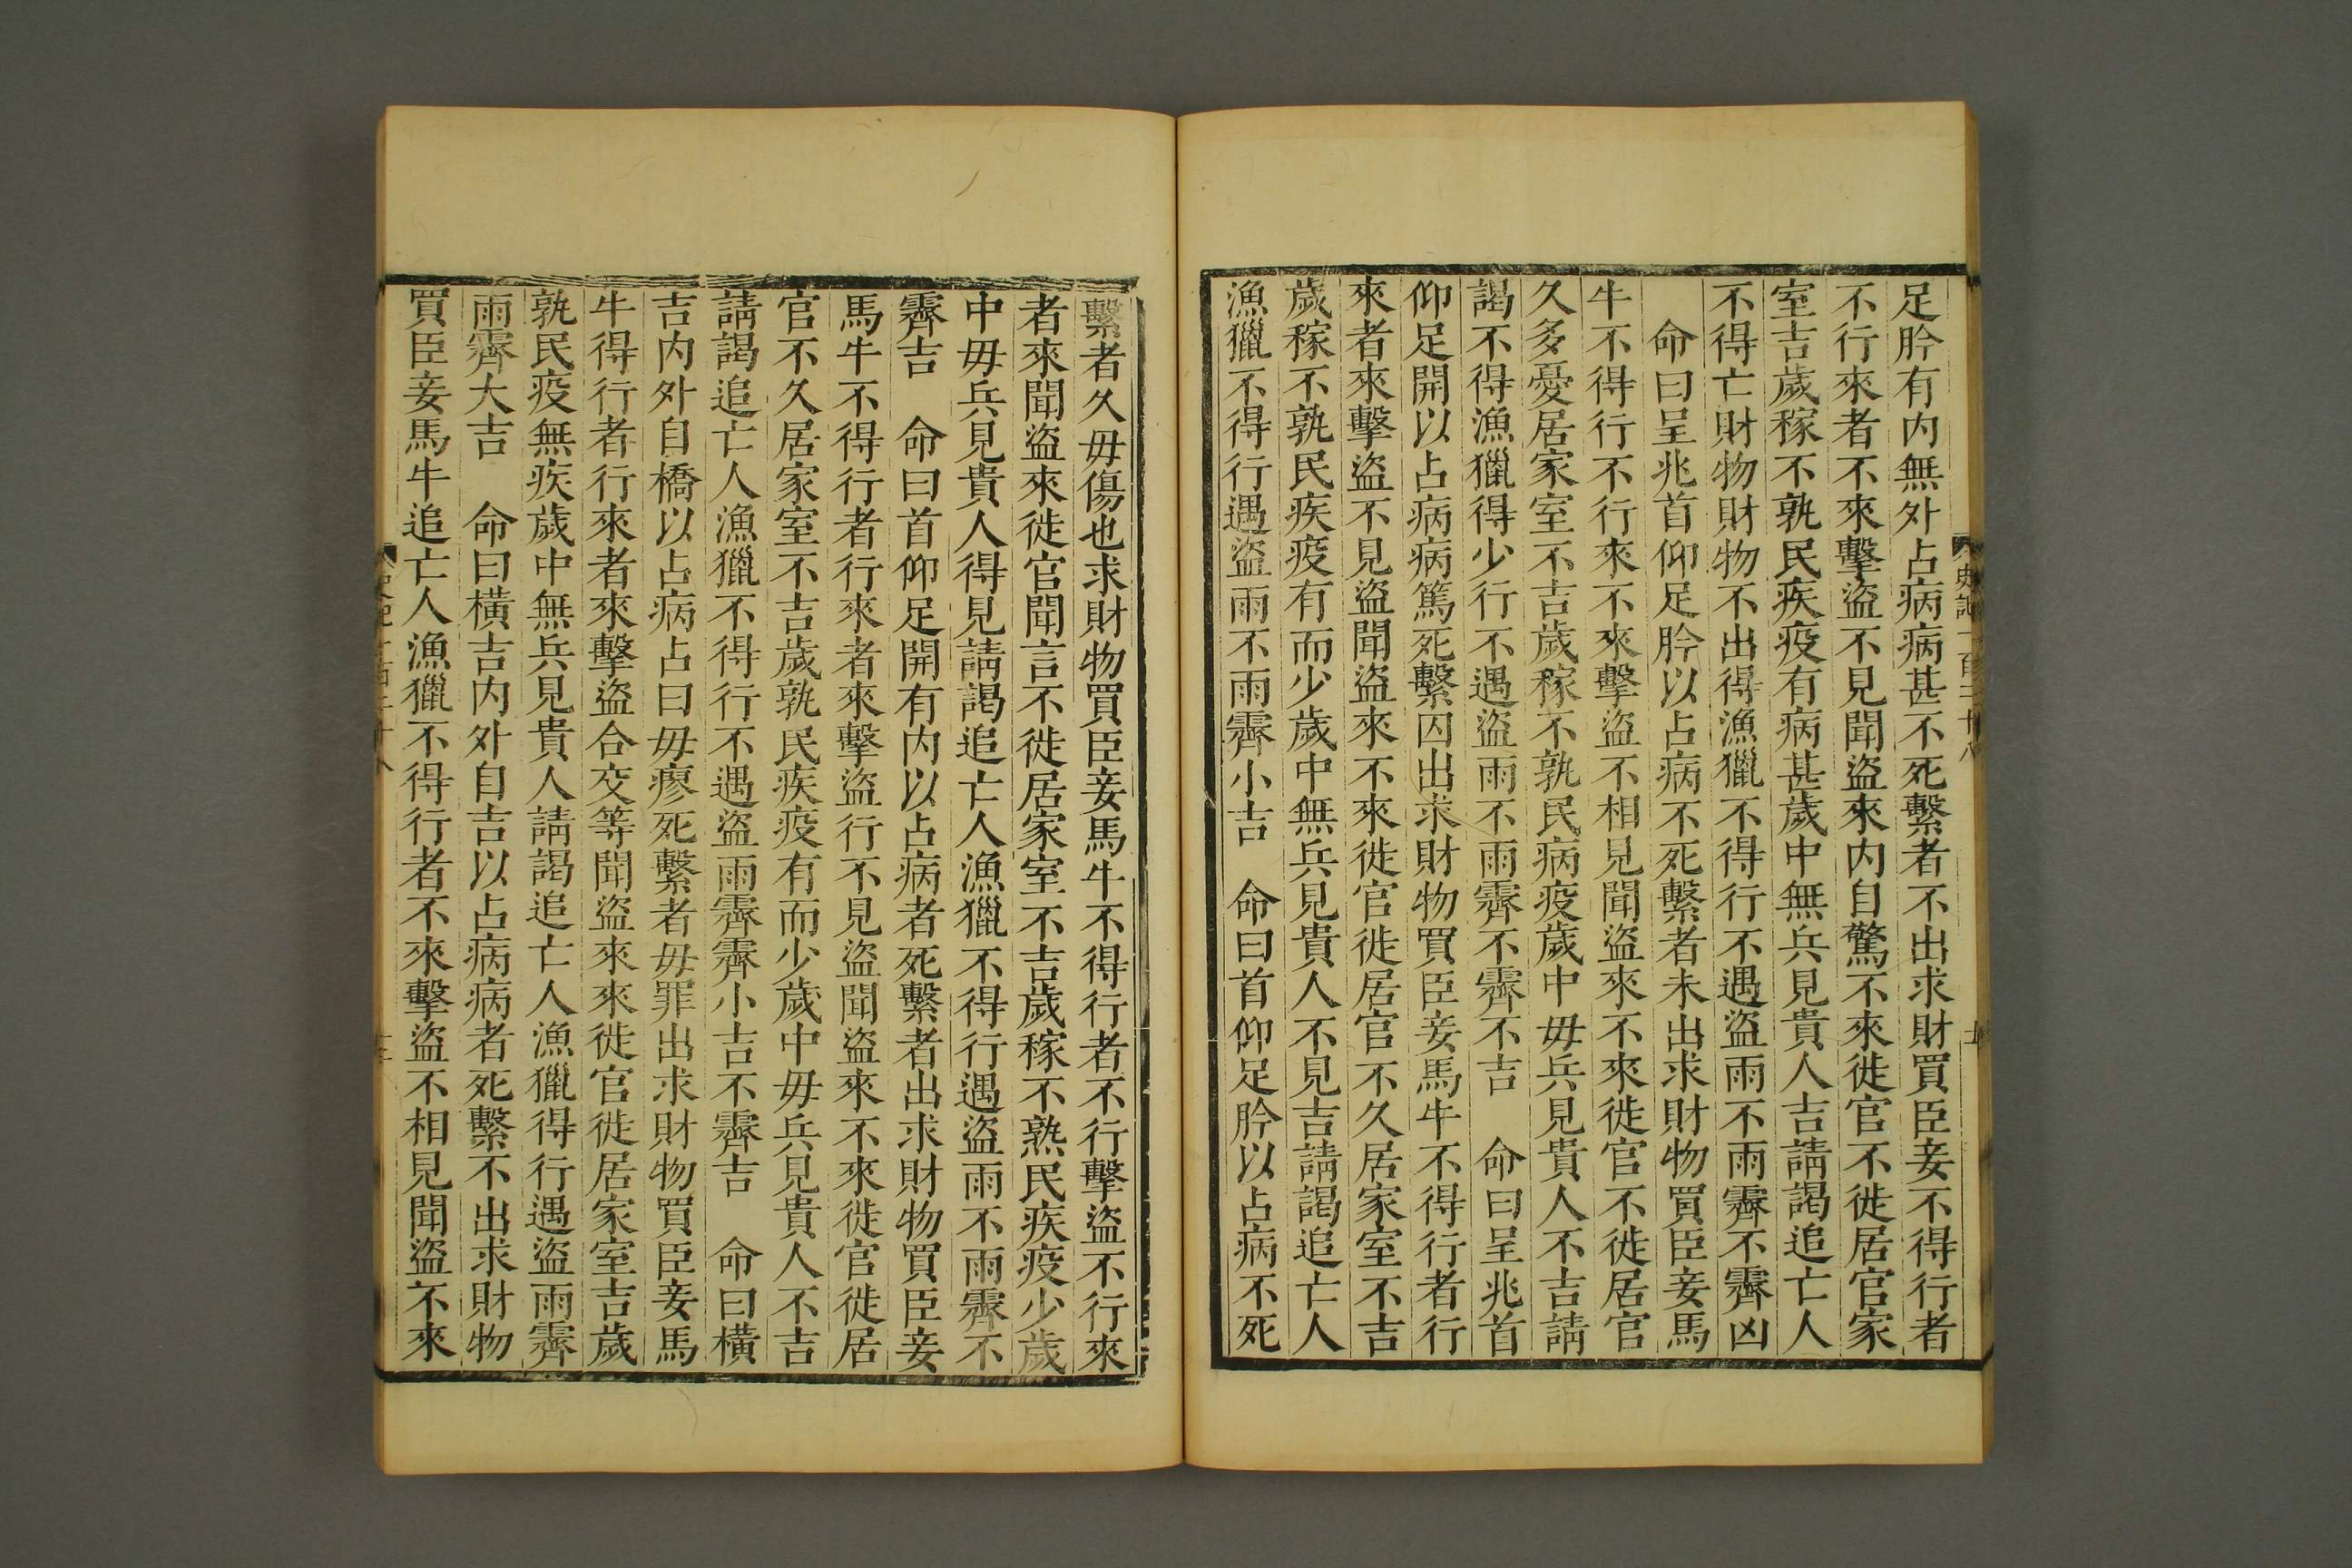 足肣有内無外占病病甚不死繫者不出求財買臣妾不得行者
不行來者不來擊盜不見聞盜來内自驚不來徙官不徙居官家
室吉歲稼不孰民疾疫有病甚歲中無兵見貴人吉請謁追亡人
不得亡財物財物不出得漁獵不得行不遇盜雨不雨霽不霽凶
命曰呈兆首仰足肣以占病不死繫者未出求財物買臣妾馬
牛不得行不行來不來擊盜不相見聞盜來不來徙官不徙居官
久多憂居家室不吉歲稼不孰民病疫歲中毋兵見貴人不吉請
謁不得漁獵得少行不遇盜雨不雨霽不霽不吉　命曰呈兆首
仰足開以占病病篤死繫囚出求財物買臣妾馬牛不得行者行
來者來擊盜不見盜聞盜來不來徙官徙居官不久居家室不吉
歲稼不孰民疾疫有而少歲中無兵見貴人不見吉請謁追亡人
漁獵不得行遇盜雨不雨霽小吉　命曰首仰足肣以占病不死
繫者久毋傷也求財物買臣妾馬牛不得行者不行擊盜不行來
者來聞盜來徙官聞言不徙居家室不吉歲稼不熟民疾疫少歲
中毋兵見貴人得見請謁追亡人漁獵不得行遇盜雨不雨霽不
霽吉　命曰首仰足開有内以占病者死繫者出求財物買臣妾
馬牛不得行者行來者來擊盜行不見盜聞盜來不來徙官徙居
官不久居家室不吉歲孰民疾疫有而少歲中毋兵見貴人不吉
請謁追亡人漁獵不得行不遇盜雨霽霽小吉不霽吉　命曰橫
吉内外自橋以占病占曰毋瘳死繫者毋罪出求財物買臣妾馬
牛得行者行來者來擊盜合交等聞盜來來徙官徙居家室吉歲
孰民疫無疾歲中無兵見貴人請謁追亡人漁獵得行遇盜雨霽
雨霽大吉　命曰橫吉内外自吉以占病病者死繫不出求財物
買臣妾馬牛追亡人漁獵不得行者不來擊盜不相見聞盜不來